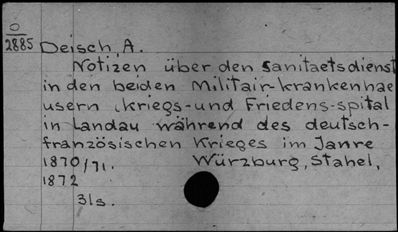 O
2885
Deisch, A.
Notizen über den Sanitaetsdienst
in den beiden Militair-krankenhae
usern kriegs- und Friedens-spital
in Landau während des deutsch-
französischen Krieges im Janre
1870/71. Würzburg, Stahel,
1872
31s.